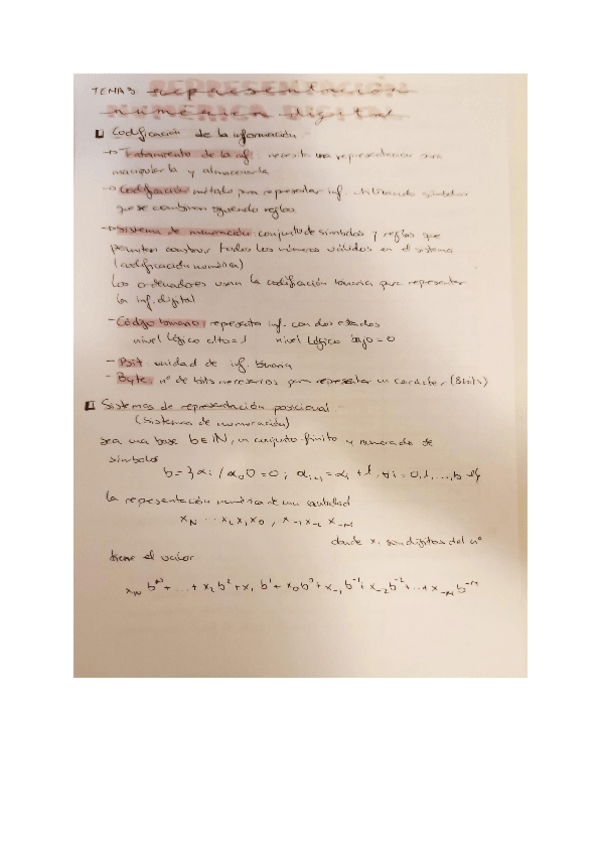 TEMA 3 REPRESENTACIÓN
NUMÉRICA DIGITAL
Codificación de la información
→ Tratamiento de la inf.: necesita una representación para
manipularla y almacenarla
→ Codificación: método para representar inf. utilizando símbolos
que se combinan siguiendo reglas.
→ Sistema de numeración: conjunto de símbolos y reglas que
permiten construir todos los números válidos en el sistema
(codificación numérica)
Los ordenadores usan la codificación binaria para representar
la inf. digital
- Código binario: representa inf. con dos estados
nivel lógico alto = 1 nivel lógico bajo = 0
- Bit: unidad de inf. binaria
- Byte: nº de bits necesarios para representar un carácter (8 bits)
Sistemas de representación posicional
(Sistemas de numeración)
sea una base b∈ℕ, un conjunto finito y numerado de
símbolos
b = { αi / α0 = 0; αi+1 = αi + 1, ∀i = 0,1,...,b
la representación numérica de una cantidad
xN ... x2 x1 x0 , x-1 x-2 x-M
donde xi son dígitos del nº
tiene el valor
xN b^N + ... + x2 b^2 + x1 b^1 + x0 b^0 + x-1 b^-1 + x-2 b^-2 + ... + x-M b^-M